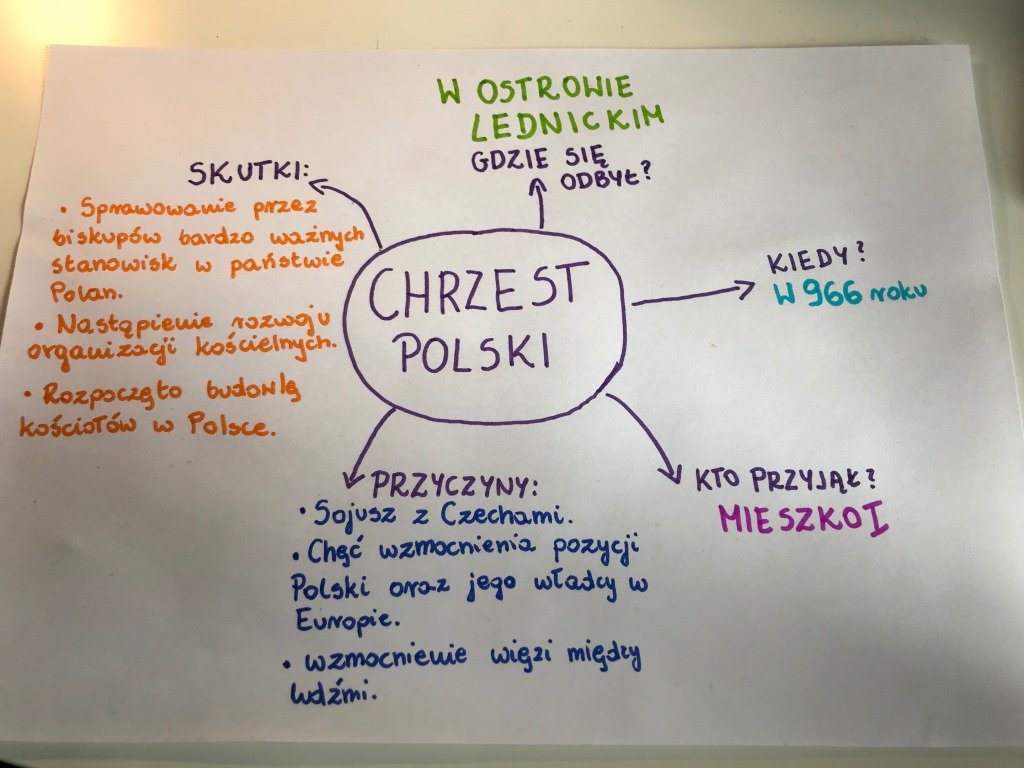 W OSTROWIE
LEDNICKIM
GDZIE SIĘ
ODBYŁ?
SKUTKI:
• Sprawowanie przez
biskupów bardzo ważnych
stanowisk w państwie
Polan.
• Nastąpienie rozwoju
organizacji kościelnych.
• Rozpoczęto budowlę
kościołów w Polsce.
CHRZEST
POLSKI
KIEDY?
W 966 roku
KTO PRZYJĄŁ?
MIESZKO I
PRZYCZYNY:
• Sojusz z Czechami.
• Chęć wzmocnienia pozycji
Polski oraz jego władcy w
Europie.
• wzmocnienie więzi między
ludźmi.